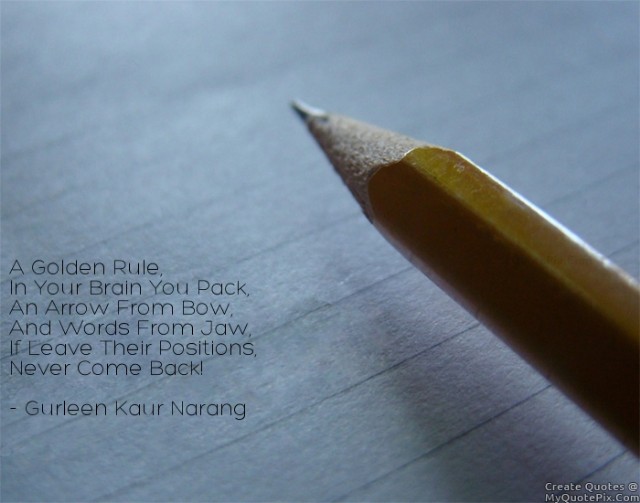 A Golden Rule,
In Your Brain You Pack,
An Arrow From Bow,
And Words From Jaw,
If Leave Their Positions,
Never Come Back!
- Gurleen Kaur Narang
Create Quotes @
MyQuotePix.Com